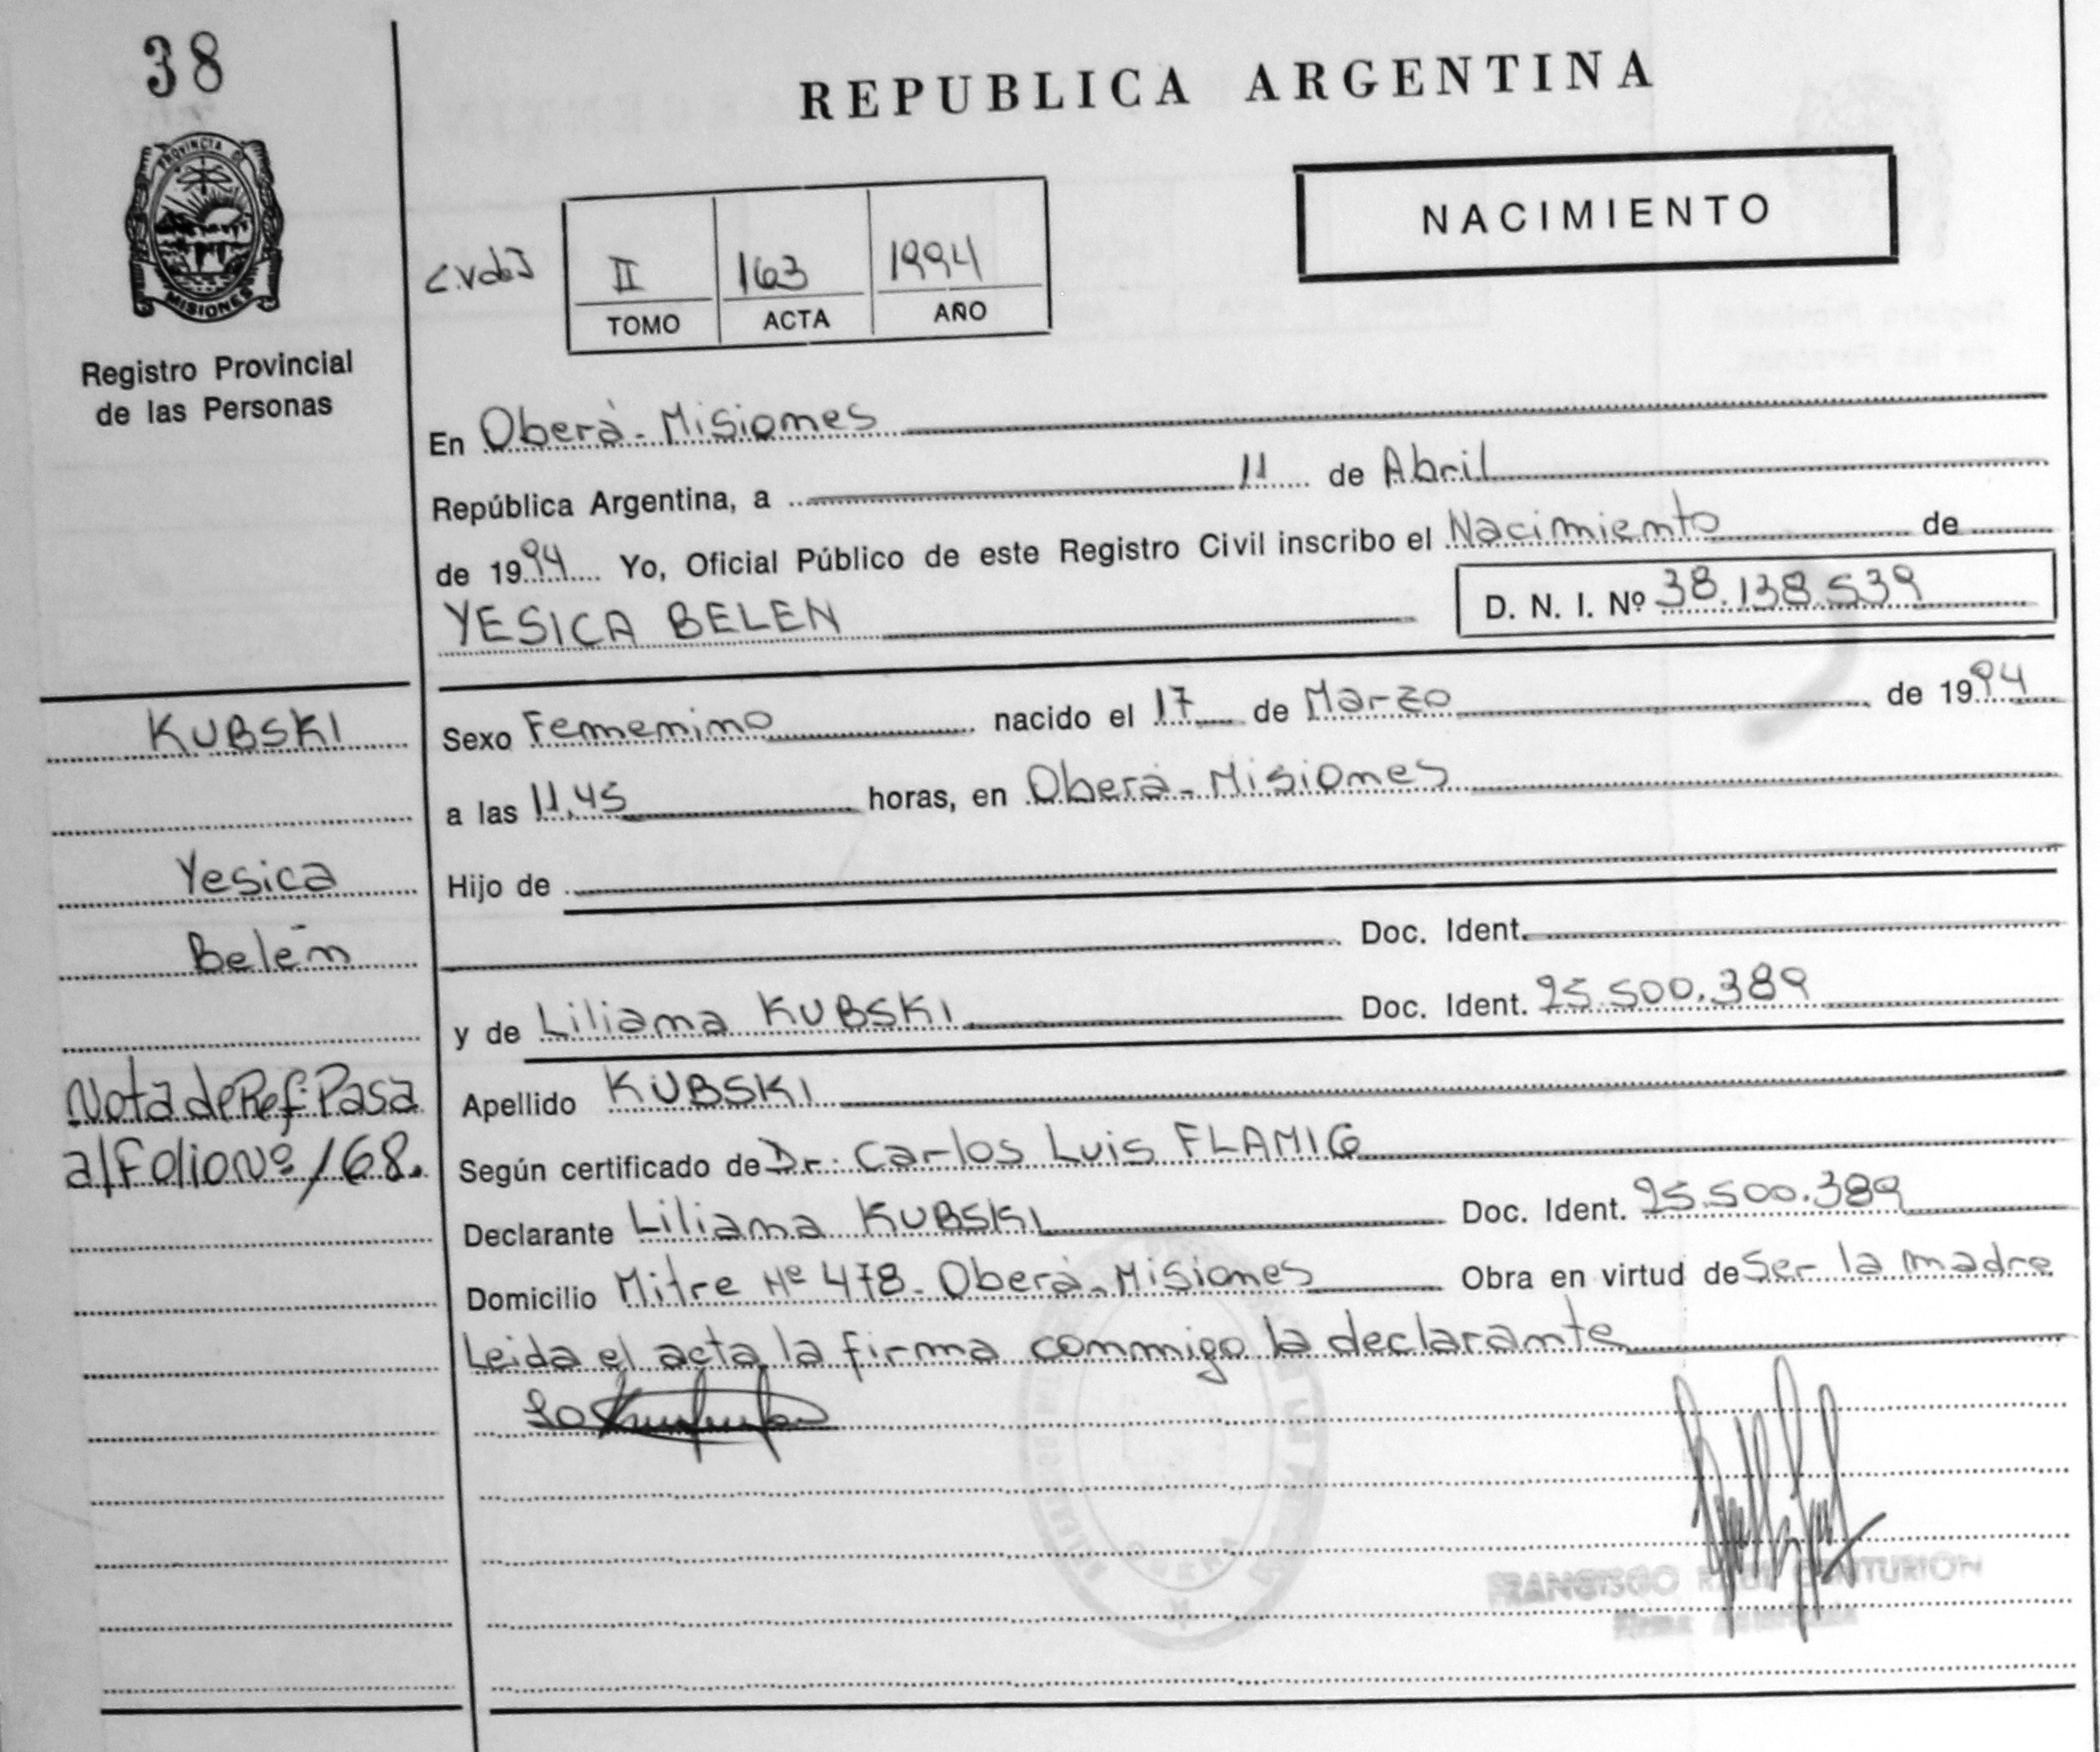 38
REPUBLICA ARGENTINA
PROVINCIA DE
MISIONES
Registro Provincial
de las Personas
II 163 1994
TOMO ACTA AÑO
NACIMIENTO
En Oberá - Misiones
República Argentina, a 11 de Abril
de 1994 Yo, Oficial Público de este Registro Civil inscribo el Nacimiento de
YESICA BELEN D. N. I. Nº 38.138.539
KUBSKI
Yesica
Belén
Nota de Ref: Pasa
al Folio Nº 168.
Sexo Femenino nacido el 17 de Marzo de 1994
a las 11,45 horas, en Oberá - Misiones
Hijo de
Doc. Ident.
y de Liliana KUBSKI Doc. Ident. 25.500.389
Apellido KUBSKI
Según certificado de Dr. Carlos Luis FLAMIG
Declarante Liliana KUBSKI Doc. Ident. 25.500.389
Domicilio Mitre Nº 478 - Oberá - Misiones Obra en virtud de Ser la madre
Leida el acta, la firma conmigo la declarante
FRANCISCO RAUL CENTURION